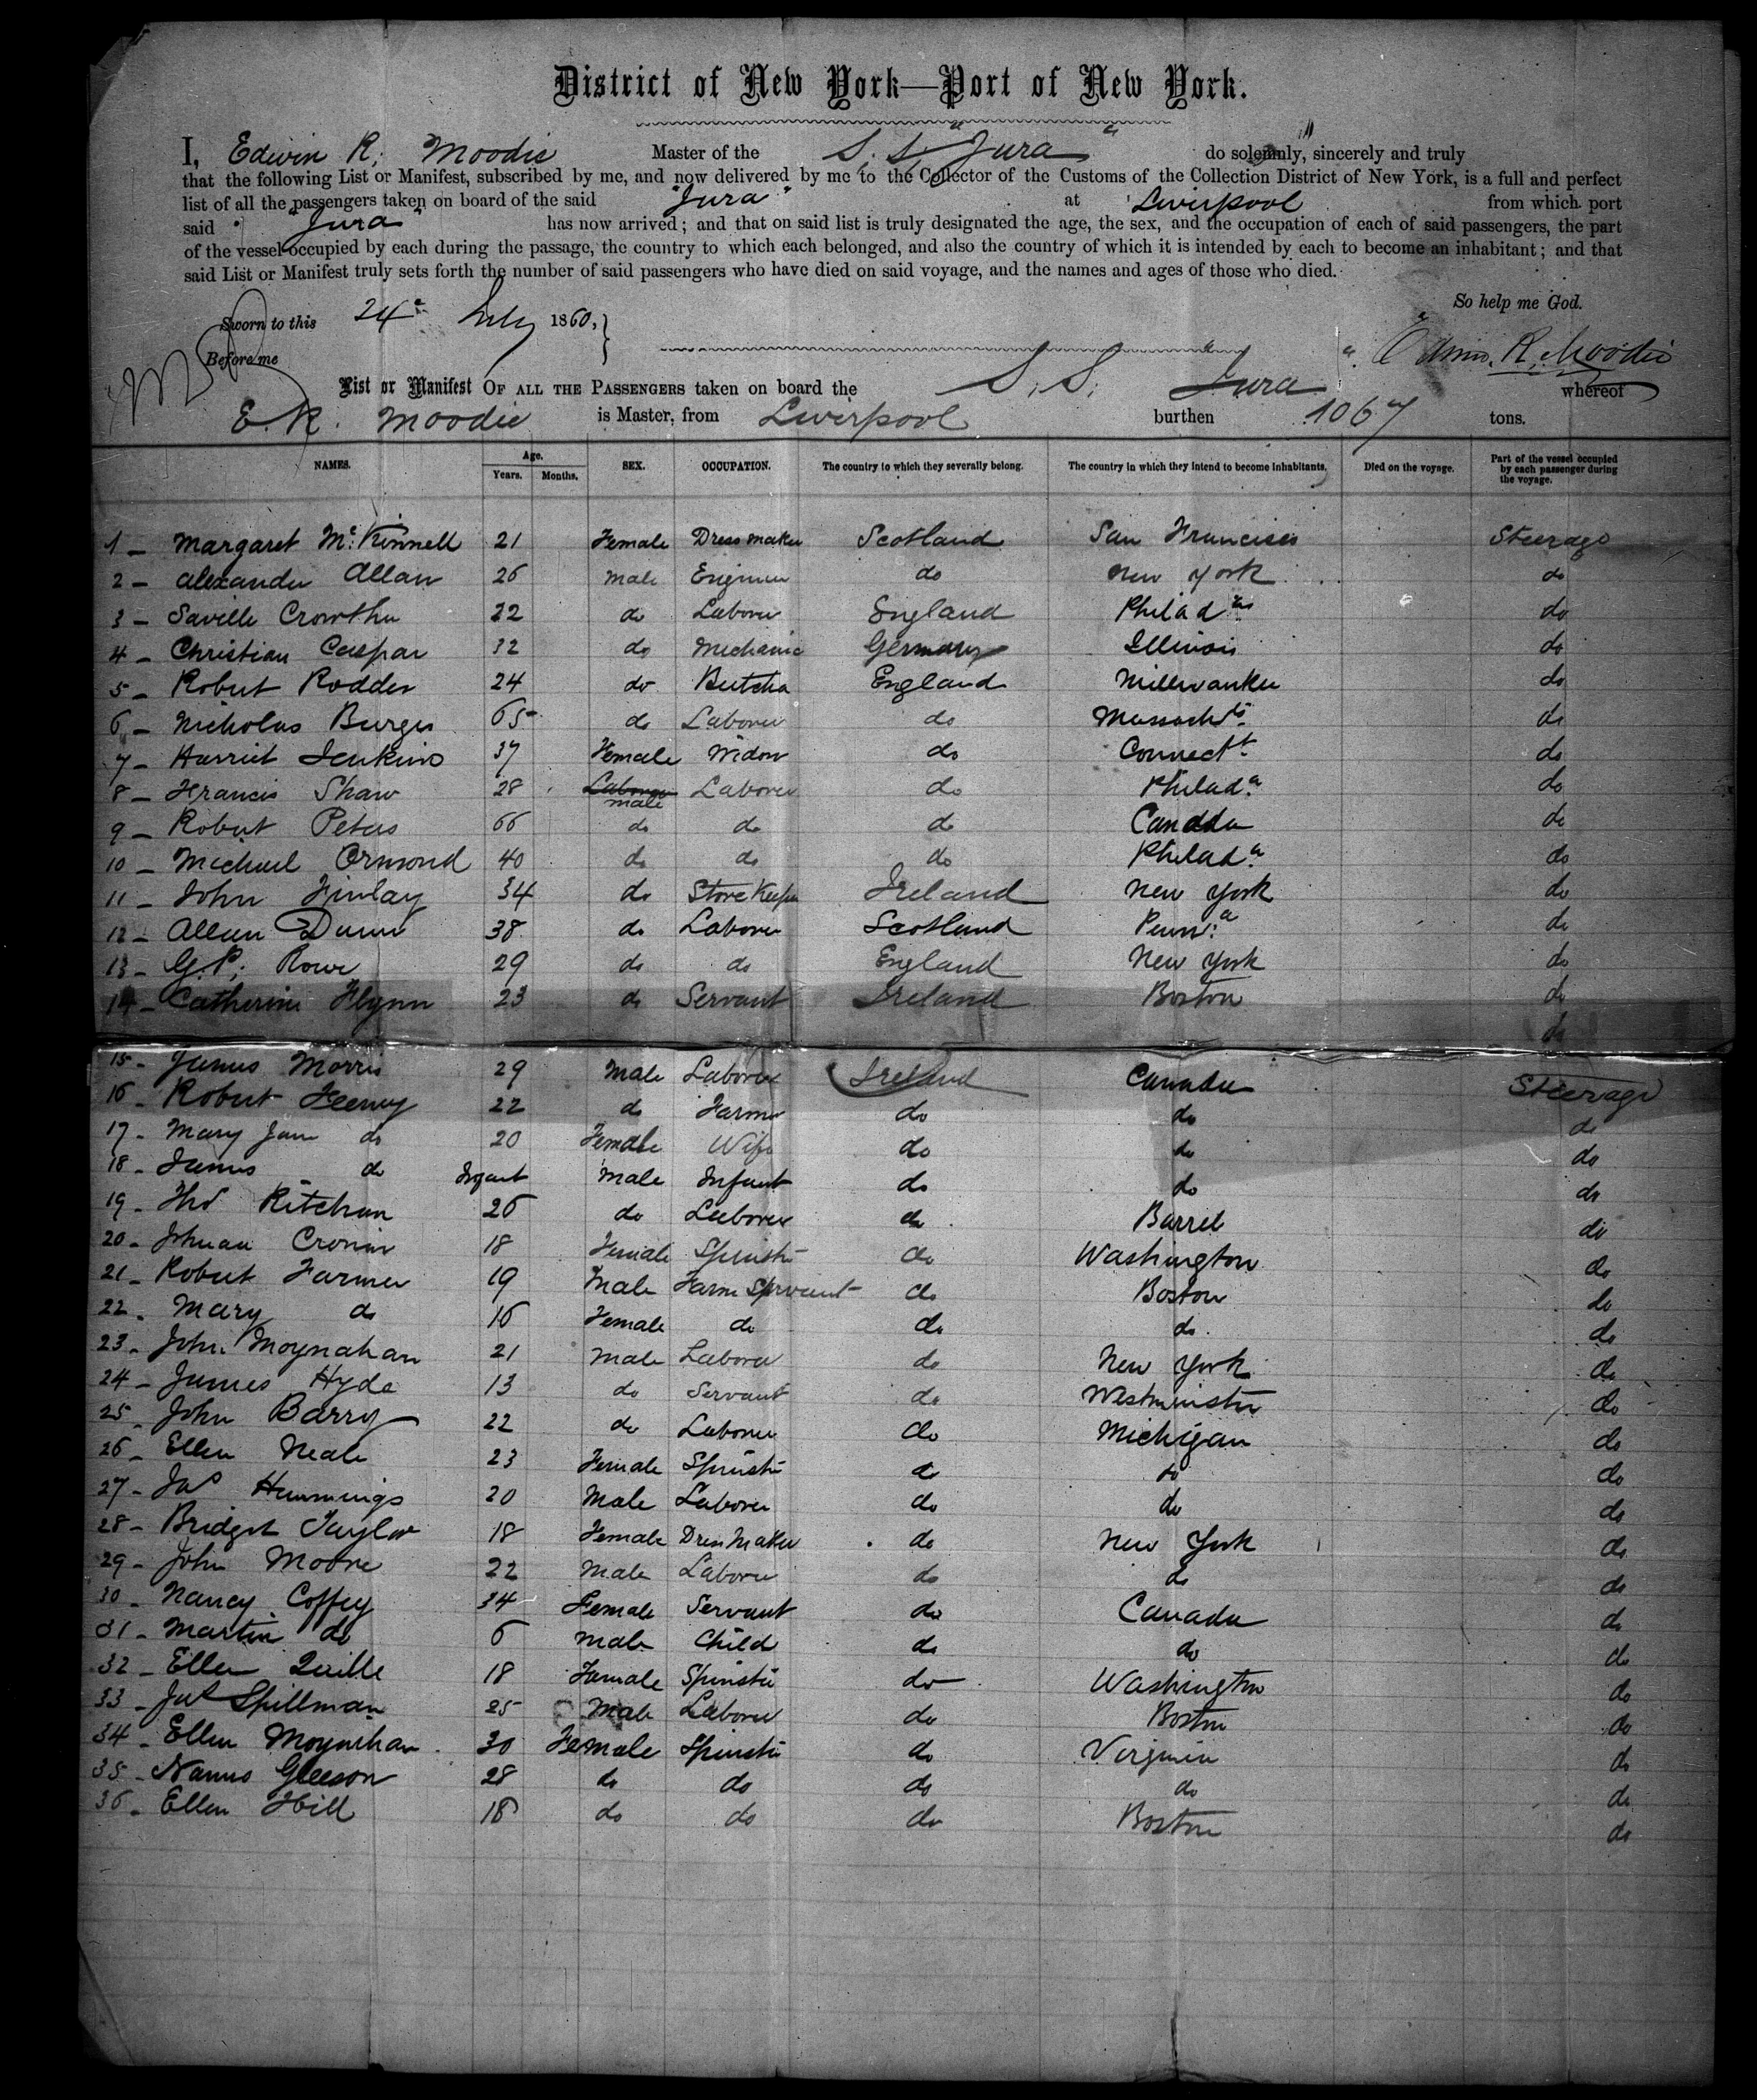 District of New York—Port of New York.
I, Edwin R. Moodie Master of the S. S. "Jura" do solemnly, sincerely and truly
that the following List or Manifest, subscribed by me, and now delivered by me to the Collector of the Customs of the Collection District of New York, is a full and perfect
list of all the passengers taken on board of the said "Jura" at Liverpool from which port
said "Jura" has now arrived; and that on said list is truly designated the age, the sex, and the occupation of each of said passengers, the part
of the vessel occupied by each during the passage, the country to which each belonged, and also the country of which it is intended by each to become an inhabitant; and that
said List or Manifest truly sets forth the number of said passengers who have died on said voyage, and the names and ages of those who died.
So help me God.
Sworn to this 24th July 1860,
Before me Edwin. R. Moodie
List or Manifest OF ALL THE PASSENGERS taken on board the S. S. "Jura" whereof
E. R. Moodie is Master, from Liverpool burthen 1067 tons.
NAMES. Age. Years. Months. SEX. OCCUPATION. The country to which they severally belong. The country in which they intend to become inhabitants. Died on the voyage. Part of the vessel occupied by each passenger during the voyage.
1 - Margaret McKinnell 21 Female Dress maker Scotland San Francisco Steerage
2 - Alexander Allan 26 male Engineer do New York do
3 - Saville Crowther 22 do Laborer England Philada do
4 - Christian Caspar 32 do Mechanic Germany Illinois do
5 - Robert Rodder 24 do Butcher England Millwankee do
6 - Nicholas Burges 65 do Laborer do Massachts. do
7 - Harriet Jenkins 37 Female Widow do Connectt. do
8 - Francis Shaw 28 Laborer male Laborer do Philada. do
9 - Robert Peters 66 do do do Canada do
10 - Michael Ormond 40 do do do Philada. do
11 - John Finlay 34 do Store Keeper Ireland New York do
12 - Allan Dunn 38 do Laborer Scotland Penna. do
13 - G. P. Rowe 29 do do England New York do
14 - Catherine Flynn 23 do Servant Ireland Boston do
do
15 - James Morris 29 Male Laborer Ireland Canada Steerage
16 - Robert Feeney 22 do Farmer do do do
17 - Mary Jane do 20 Female Wife do do do
18 - James do Infant Male Infant do do do
19 - Thos Kitchan 26 do Laborer do Barrel do
20 - Johnan Cronin 18 Female Spinster do Washington do
21 - Robert Farmer 19 Male Farm Servant do Boston do
22 - Mary do 16 Female do do do do
23 - John Moynahan 21 Male Laborer do New York do
24 - James Hyde 13 do Servant do Westminster do
25 - John Barry 22 do Laborer do Michigan do
26 - Ellen Neale 23 Female Spinster do do do
27 - Jas Hemmings 20 Male Laborer do do do
28 - Bridget Taylor 18 Female Dress Maker do New York do
29 - John Moore 22 Male Laborer do do do
30 - Nancy Coffey 34 Female Servant do Canada do
31 - Martin do 6 Male Child do do do
32 - Ellen 18 Female Spinster do Washington do
33 - Jas Spillman 25 Male Laborer do Boston do
34 - Ellen Moynihan 30 Female Spinster do Virginia do
35 - Gleeson 28 do do do do do
36 - Ellen Hill 18 do do do Boston do